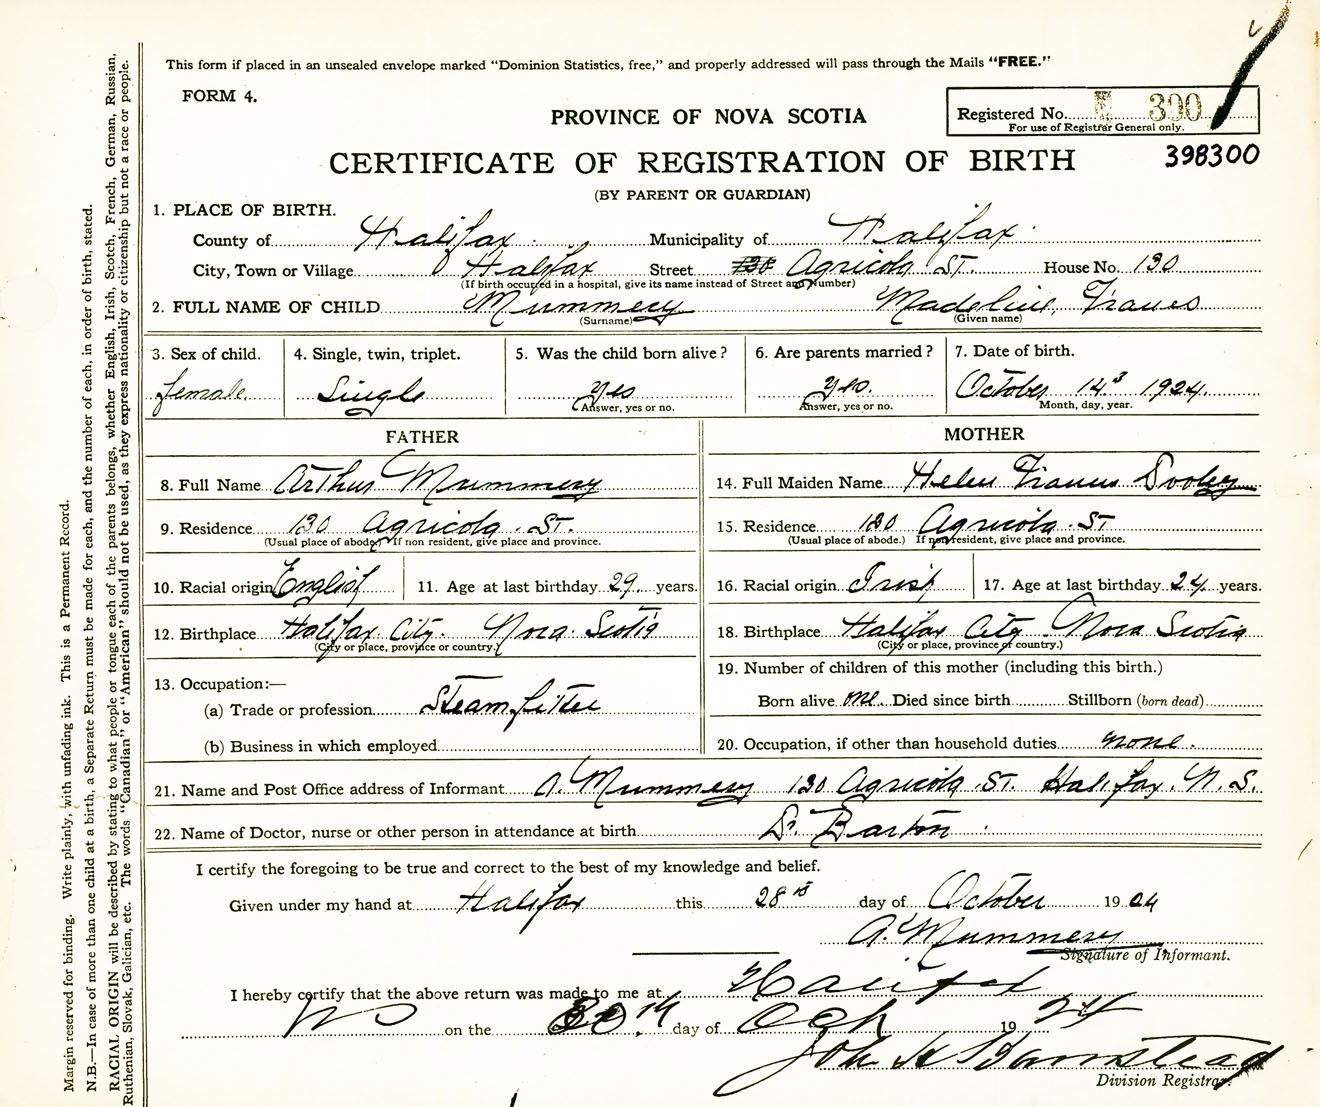 This form if placed in an unsealed envelope marked "Dominion Statistics, free," and properly addressed will pass through the Mails "FREE."
FORM 4.
PROVINCE OF NOVA SCOTIA
Registered No. 390
For use of Registrar General only.
CERTIFICATE OF REGISTRATION OF BIRTH 398300
(BY PARENT OR GUARDIAN)
1. PLACE OF BIRTH.
County of Halifax Municipality of Halifax
City, Town or Village Halifax Street Agricola St. House No. 130
(If birth occurred in a hospital, give its name instead of Street and Number)
2. FULL NAME OF CHILD Mummery Madeline Frances
(Surname) (Given name)
3. Sex of child. 4. Single, twin, triplet. 5. Was the child born alive? 6. Are parents married? 7. Date of birth.
female Single yes yes. October 14 1924.
Answer, yes or no. Answer, yes or no. Month, day, year.
FATHER MOTHER
8. Full Name Arthur Mummery
9. Residence 130 Agricola St.
(Usual place of abode.) If non resident, give place and province.
10. Racial origin English 11. Age at last birthday 29 years.
12. Birthplace Halifax City. Nova Scotia
(City or place, province or country.)
13. Occupation:—
(a) Trade or profession Steam fitter
(b) Business in which employed
14. Full Maiden Name Helen Frances Dooley
15. Residence 130 Agricola St
(Usual place of abode.) If non resident, give place and province.
16. Racial origin Irish 17. Age at last birthday 24 years.
18. Birthplace Halifax City Nova Scotia
(City or place, province or country.)
19. Number of children of this mother (including this birth.)
Born alive one Died since birth Stillborn (born dead)
20. Occupation, if other than household duties none.
21. Name and Post Office address of Informant A. Mummery 130 Agricola St. Halifax. N.S.
22. Name of Doctor, nurse or other person in attendance at birth Dr Barton
I certify the foregoing to be true and correct to the best of my knowledge and belief.
Given under my hand at Halifax this 28th day of October 1924
A. Mummery
Signature of Informant.
I hereby certify that the above return was made to me at Halifax
NS on the 30th day of Oct 1924
John H Barnstead
Division Registrar.
Margin reserved for binding. Write plainly, with unfading ink. This is a Permanent Record.
N.B.—In case of more than one child at a birth, a Separate Return must be made for each, and the number of each, in order of birth, stated.
RACIAL ORIGIN will be described by stating to what people or tongue each of the parents belongs, whether English, Irish, Scotch, French, German, Russian,
Ruthenian, Slovak, Galician, etc. The words "Canadian" or "American" should not be used, as they express nationality or citizenship but not a race or people.